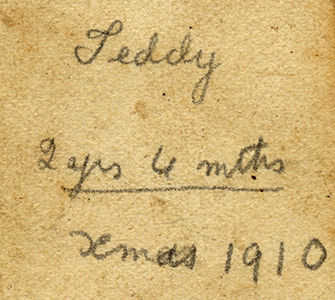 Teddy
2 yrs 4 mths
Xmas 1910